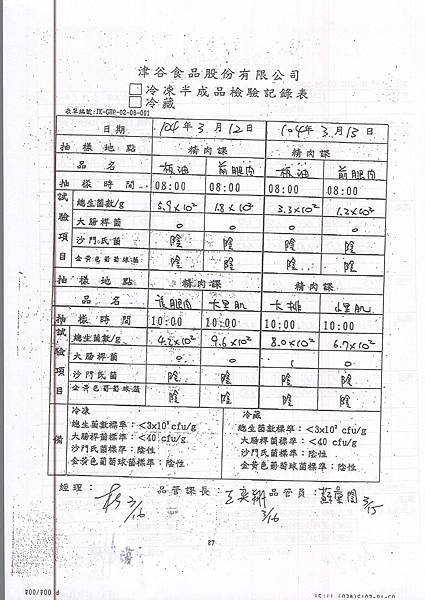 津谷食品股份有限公司
□冷凍半成品檢驗記錄表
□冷藏
表單編號:JK-GHP-02-06-001
日期 104年3月12日 104年3月13日
抽樣地點 精肉課 精肉課
品名 板油 前腿肉 板油 前腿肉
抽樣時間 08:00 08:00 08:00 08:00
試驗項目
總生菌數/g 5.9×10² 1.8×10² 3.3×10² 1.2×10²
大腸桿菌 0 0 0 0
沙門氏菌 陰 陰 陰 陰
金黃色葡萄球菌 陰 陰 陰 陰
抽樣地點 精肉課 精肉課
品名 後腿肉 大里肌 大排 小里肌
抽樣時間 10:00 10:00 10:00 10:00
試驗項目
總生菌數/g 4.2×10² 9.6×10² 8.0×10² 6.7×10²
大腸桿菌 0 0 1 0
沙門氏菌 陰 陰 陰 陰
金黃色葡萄球菌 陰 陰 陰 陰
備
冷凍
總生菌數標準:<3x10⁶ cfu/g
大腸桿菌標準:<40 cfu/g
沙門氏菌標準:陰性
金黃色葡萄球菌標準:陰性
冷藏
總生菌數標準:<3x10⁶ cfu/g
大腸桿菌標準:<40 cfu/g
沙門氏菌標準:陰性
金黃色葡萄球菌標準:陰性
經理: 3/16 品管課長: 3/16 品管員: 3/15
67
P 004/004